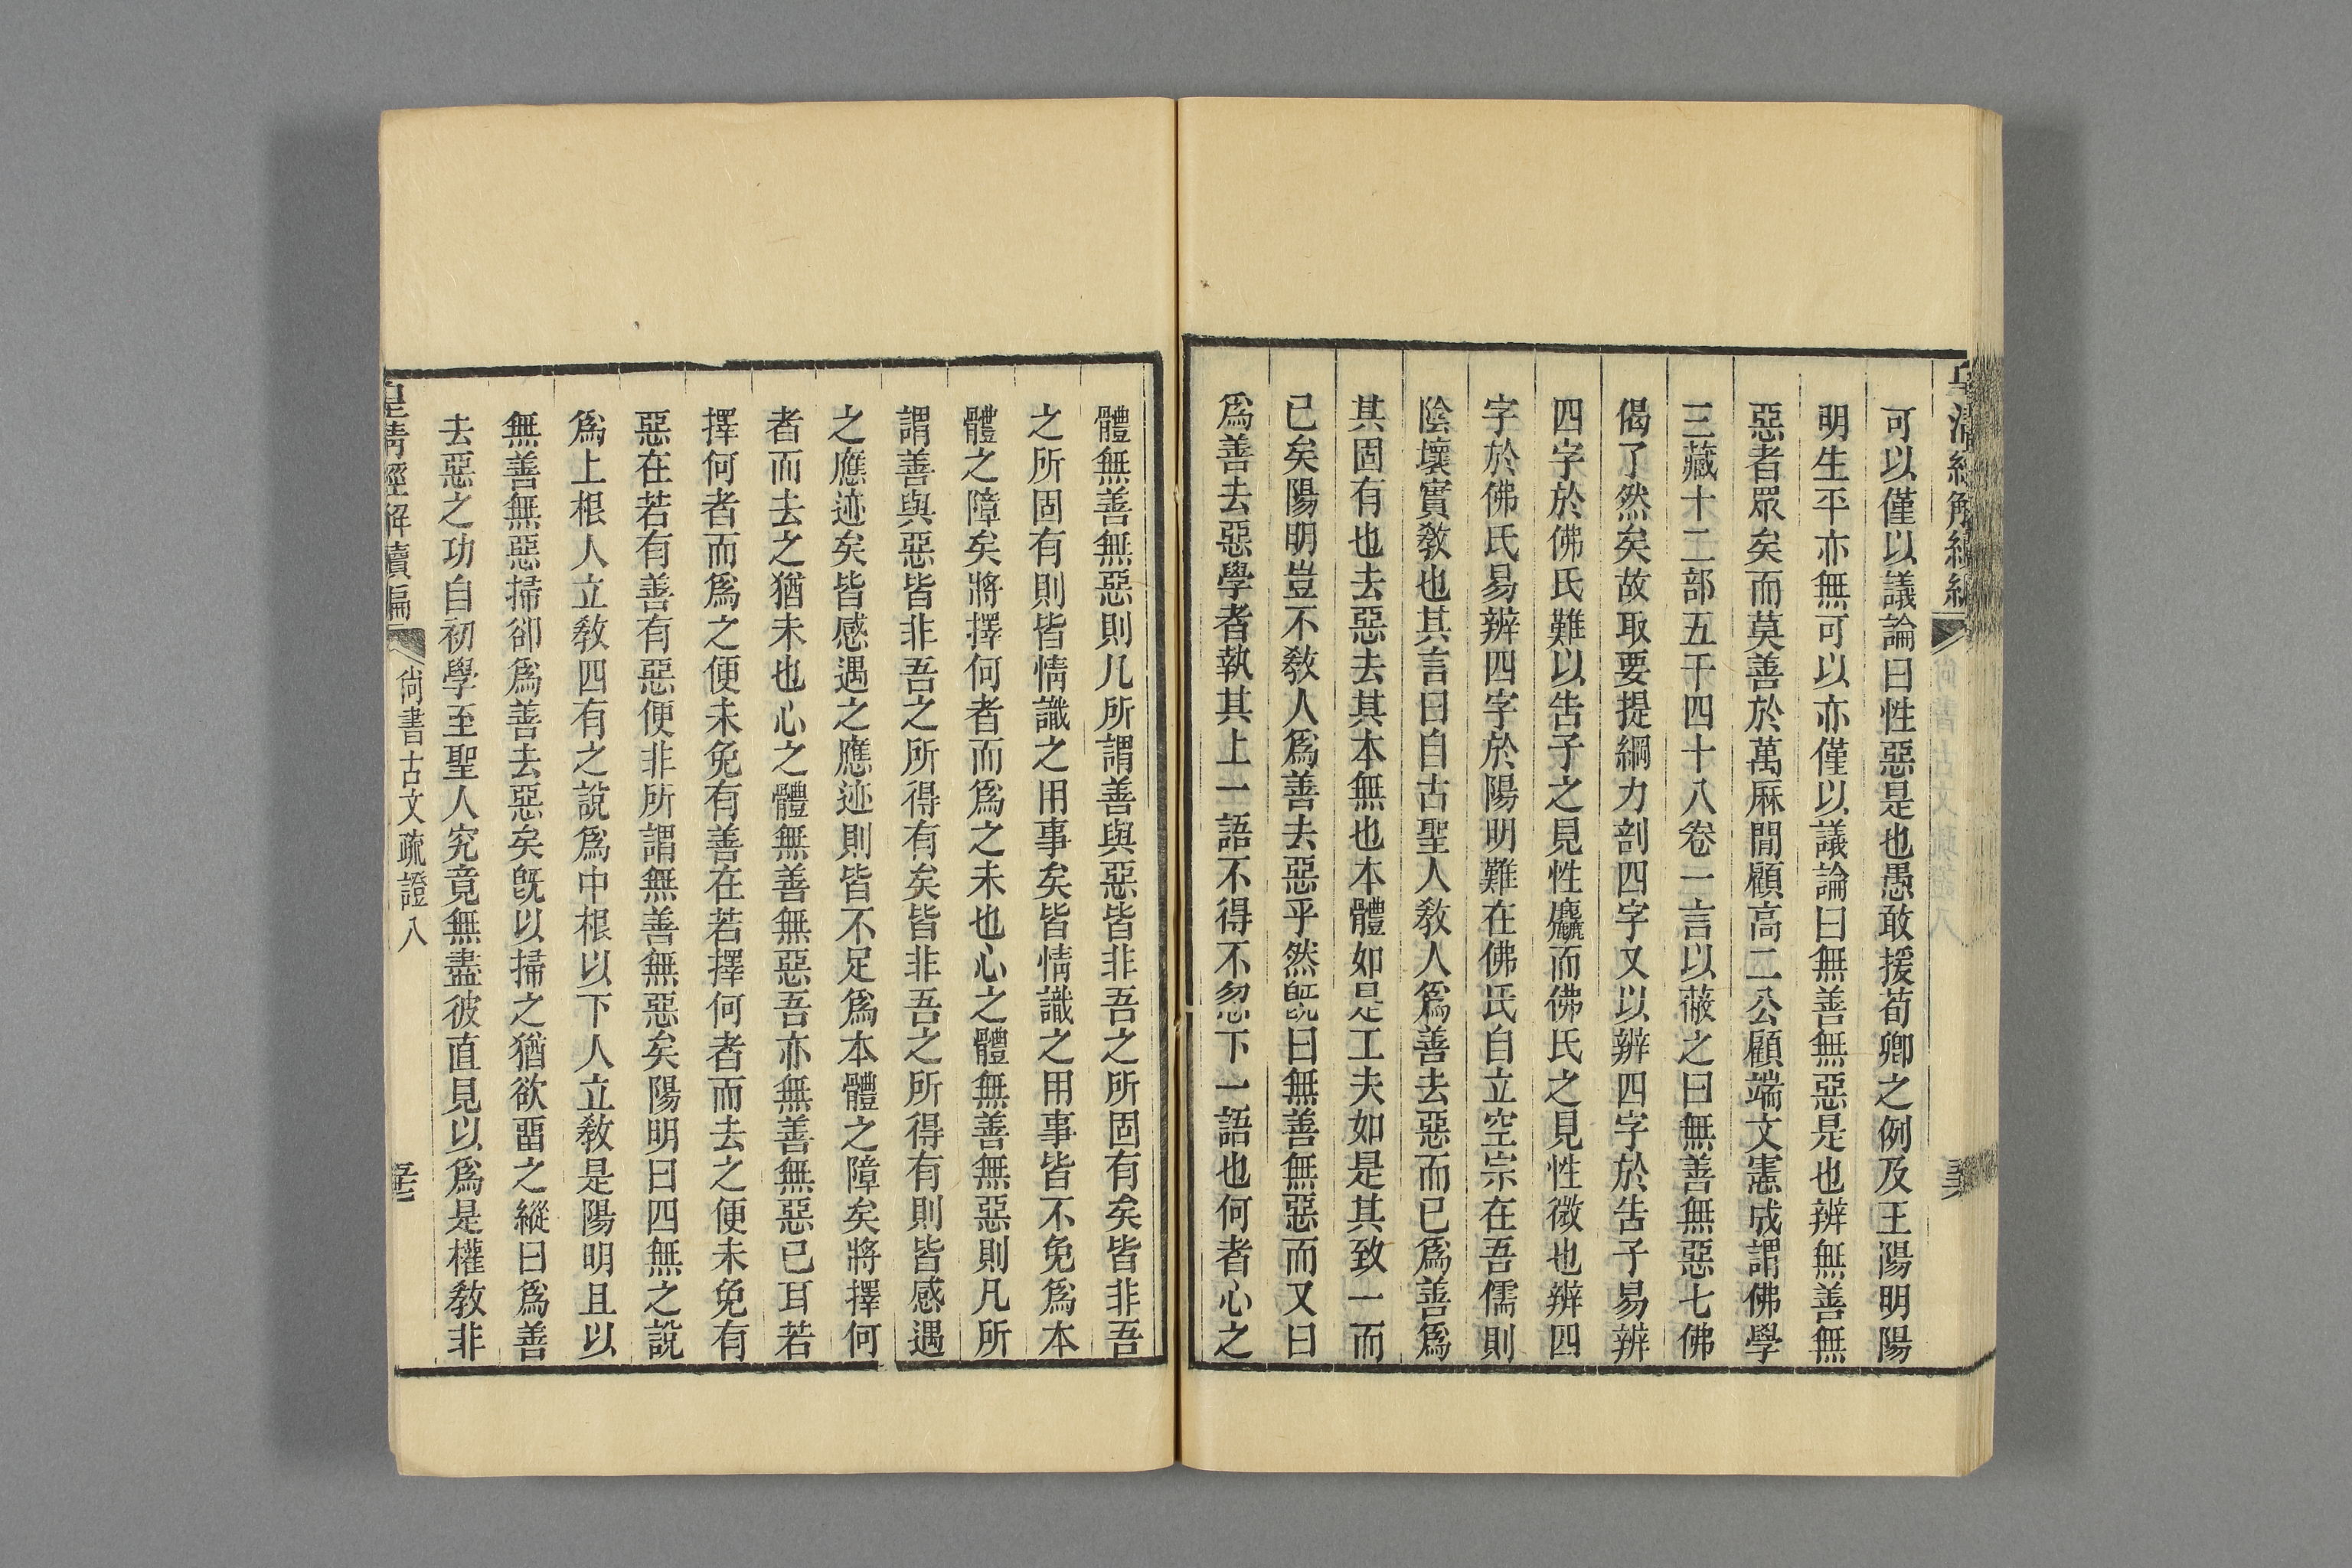 可以僅以議論曰性惡是也愚敢援荀卿之例及王陽明陽
明生平亦無可以亦僅以議論曰無善無惡是也辨無善無
惡者眾矣而莫善於萬厤閒顧高二公顧端文憲成謂佛學
三藏十二部五千四十八卷一言以蔽之曰無善無惡七佛
偈了然矣故取要提綱力剖四字又以辨四字於告子易辨
四字於佛氏難以告子之見性麤而佛氏之見性微也辨四
字於佛氏易辨四字於陽明難在佛氏自立空宗在吾儒則
陰壞實敎也其言曰自古聖人敎人爲善去惡而已爲善爲
其固有也去惡去其本無也本體如是工夫如是其致一而
已矣陽明豈不敎人爲善去惡乎然旣曰無善無惡而又曰
爲善去惡學者執其上一語不得不忽下一語也何者心之
體無善無惡則凡所謂善與惡皆非吾之所固有矣皆非吾
之所固有則皆情識之用事矣皆情識之用事皆不免爲本
體之障矣將擇何者而爲之未也心之體無善無惡則凡所
謂善與惡皆非吾之所得有矣皆非吾之所得有則皆感遇
之應迹矣皆感遇之應迹則皆不足爲本體之障矣將擇何
者而去之猶未也心之體無善無惡吾亦無善無惡已耳若
擇何者而爲之便未免有善在若擇何者而去之便未免有
惡在若有善有惡便非所謂無善無惡矣陽明曰四無之說
爲上根人立敎四有之說爲中根以下人立敎是陽明且以
無善無惡掃卻爲善去惡矣旣以掃之猶欲畱之縱曰爲善
去惡之功自初學至聖人究竟無盡彼直見以爲是權敎非
皇清經解續編
尙書古文疏證八